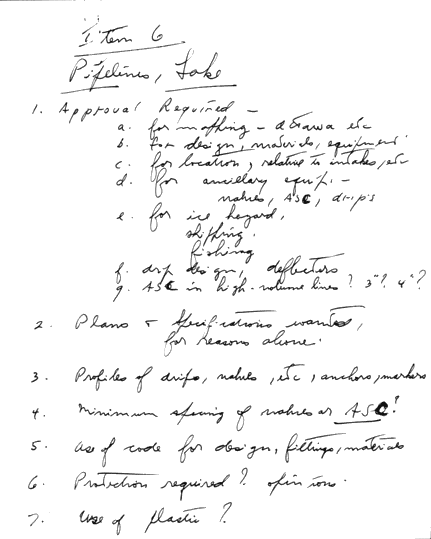 Item 6
Pipelines, Lake
1. Approval Required -
a. for nothing - Ottawa etc
b. For design, materials, equipment
c. for location, relative to intakes, etc
d. for ancillary equip. -
valves, ASC, drips
e. for ice hazard,
shipping.
fishing
f. drip design, deflectors
g. ASC in high-volume lines? 3"? 4"?
2. Plans & Specifications wanted,
for reasons above.
3. Profiles of drips, valves, etc, anchors, markers
4. Minimum spacing of valves or ASC?
5. Use of code for design, fittings, materials
6. Protection required? opinions.
7. Use of plastic?